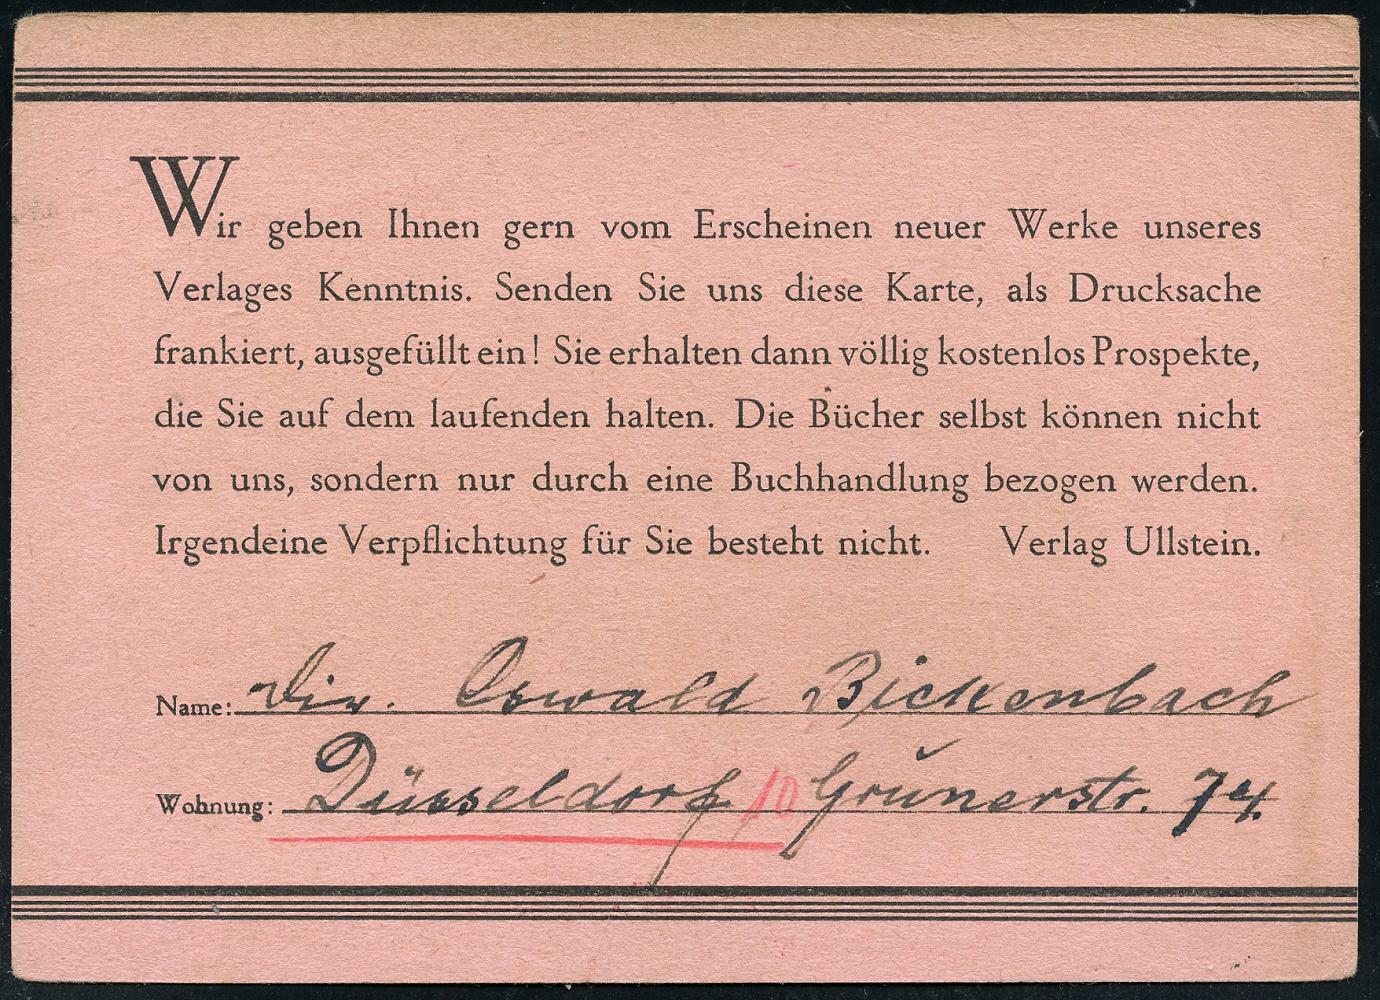 Wir geben Ihnen gern vom Erscheinen neuer Werke unseres
Verlages Kenntnis. Senden Sie uns diese Karte, als Drucksache
frankiert, ausgefüllt ein! Sie erhalten dann völlig kostenlos Prospekte,
die Sie auf dem laufenden halten. Die Bücher selbst können nicht
von uns, sondern nur durch eine Buchhandlung bezogen werden.
Irgendeine Verpflichtung für Sie besteht nicht. Verlag Ullstein.
Name: Dir. Oswald Bickenbach
Wohnung: Düsseldorf 10 Grunerstr. 74.